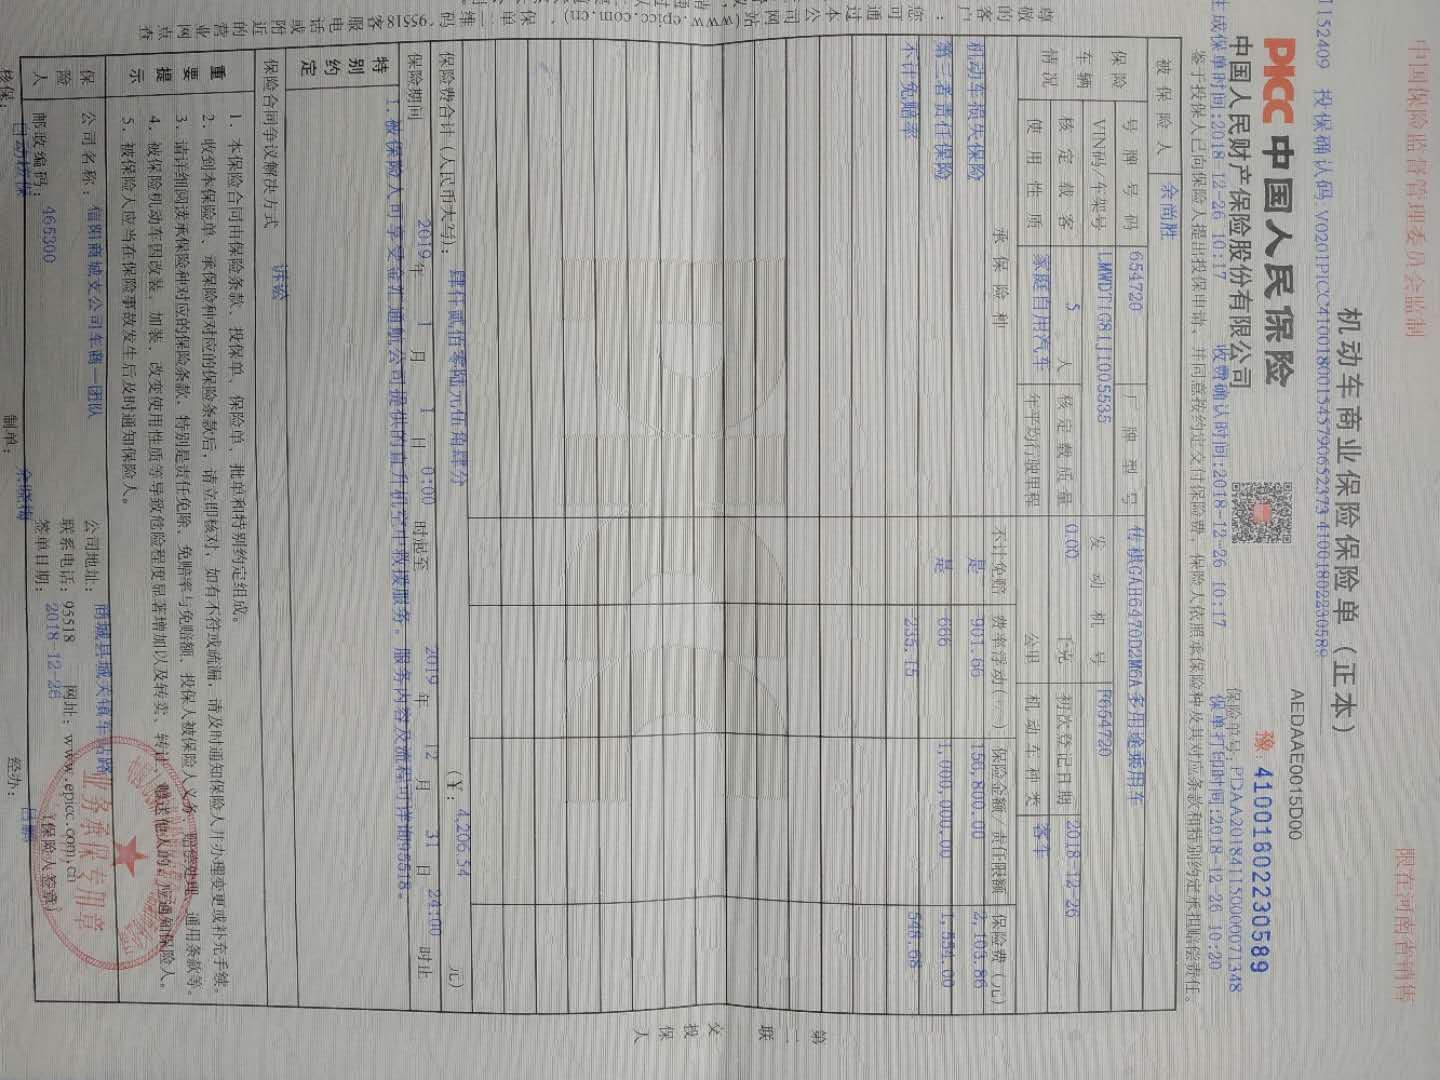 中国保险监督管理委员会监制
限在河南省销售
机动车商业保险保险单（正本）
AEDAAE0015D00
1152409 投保确认码:V0201PICC410018001545790652373 41001802230589
豫：41001802230589
PICC 中国人民保险
中国人民财产保险股份有限公司
保险单号：PDAA201841150000071348
生成保单时间:2018-12-26 10:17 收费确认时间:2018-12-26 10:17 保单打印时间:2018-12-26 10:20
鉴于投保人已向保险人提出投保申请，并同意按约定交付保险费，保险人依照承保险种及其对应条款和特别约定承担赔偿责任。
被保险人 余尚胜
保险车辆情况
号牌号码 654720 厂牌型号 传祺GAH6470D2M6A多用途乘用车
VIN码/车架号 LMWDT1G81J1005535 发动机号 P654720
核定载客 5 人 核定载质量 0.00 千克 初次登记日期 2018-12-26
使用性质 家庭自用汽车 年平均行驶里程 公里 机动车种类 客车
承保险种 不计免赔 费率浮动(+/-) 保险金额/责任限额 保险费（元）
机动车损失保险 是 901.66 150,800.00 2,103.86
第三者责任保险 是 666 1,000,000.00 1,554.00
不计免赔率 235.15 548.68
保险费合计（人民币大写）： 肆仟贰佰零陆元伍角肆分 （¥： 4,206.54 元）
保险期间 2019 年 1 月 1 日 0:00 时起至 2019 年 12 月 31 日 24:00 时止
特别约定
1.被保险人可享受金汇通航公司提供的直升机空中救援服务。服务内容及流程可详询95518。
保险合同争议解决方式 诉讼
重要提示
1. 本保险合同由保险条款、投保单、保险单、批单和特别约定组成。
2. 收到本保险单、承保险种对应的保险条款后，请立即核对，如有不符或疏漏，请及时通知保险人并办理变更或补充手续。
3. 请详细阅读承保险种对应的保险条款，特别是责任免除、免赔率与免赔额、投保人被保险人义务、赔偿处理、通用条款等。
4. 被保险机动车因改装、加装、改变使用性质等导致危险程度显著增加以及转卖、转让、赠送他人的，应通知保险人。
5. 被保险人应当在保险事故发生后及时通知保险人。
保险人
公司名称： 信阳商城支公司车商一团队 公司地址： 商城县城关镇车站路
邮政编码： 465300 联系电话：95518 网址：www.epicc.com.cn
签单日期： 2018-12-26 （保险人签章）
业务承保专用章
核保： 自动核保 制单： 余晓梅 经办： 吕鹏
第二联 交投保人
尊敬的客户：您可通过本公司网站(www.epicc.com.cn)
维码、95518客服电话或附近的营业网点查